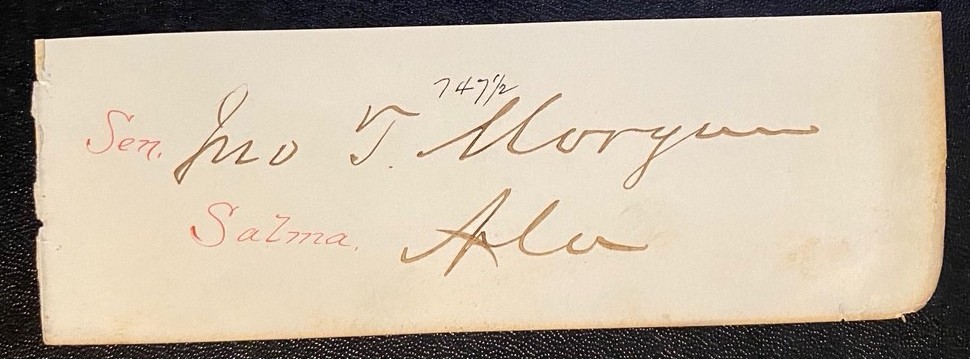 747½
Sen. Jno T. Morgan
Salma. Ala